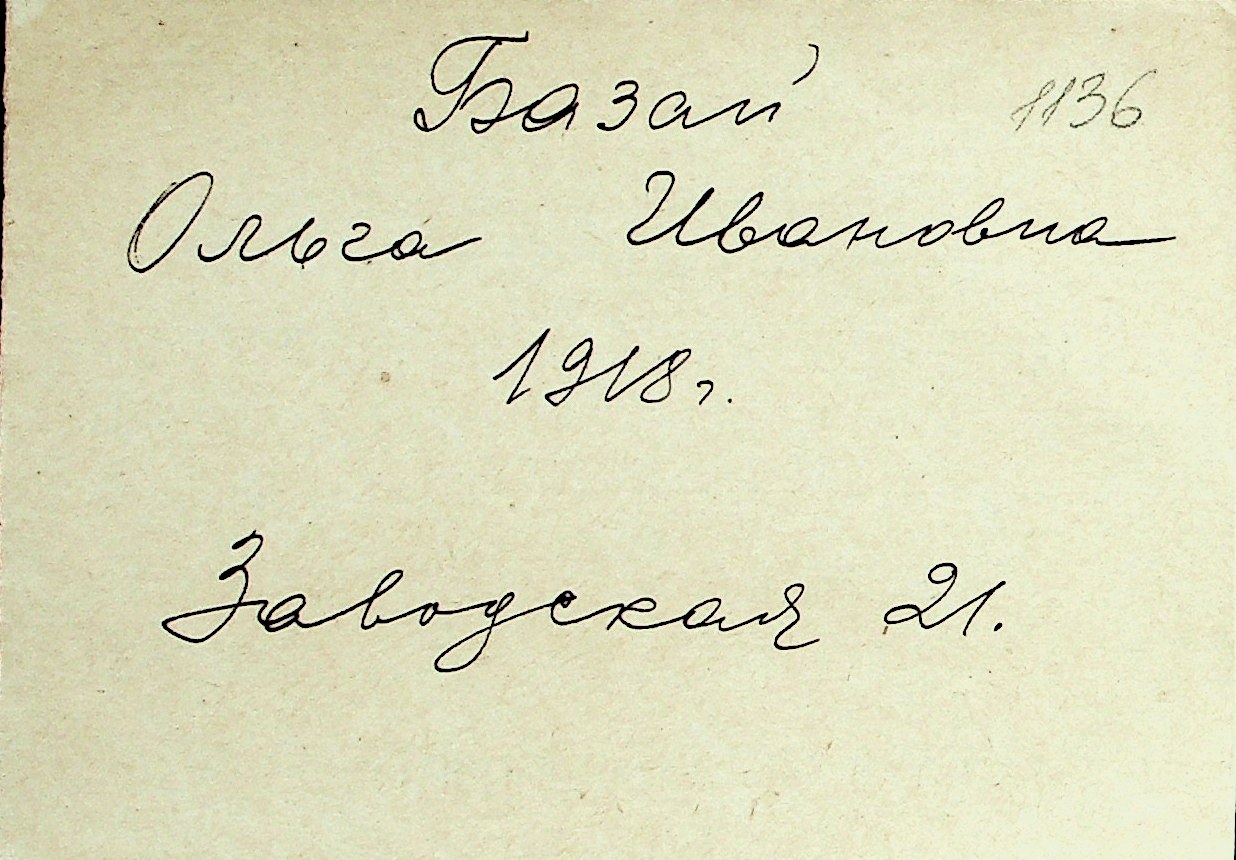 Базай 1136
Ольга Ивановна
1918 г.
Заводская 21.